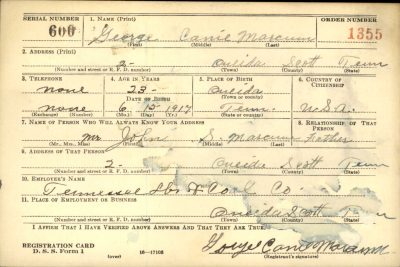 SERIAL NUMBER 1. NAME (Print) ORDER NUMBER
600 George Canie Marcum 1355
(First) (Middle) (Last)
2. ADDRESS (Print)
2- Oneida Scott Tenn
(Number and street or R. F. D. number) (Town) (County) (State)
3. TELEPHONE 4. AGE IN YEARS 5. PLACE OF BIRTH 6. COUNTRY OF CITIZENSHIP
none 23- Oneida
DATE OF BIRTH (Town or county)
none 6 1917 Tenn. U.S.A.
(Exchange) (Number) (Mo.) (Day) (Yr.) (State or country)
7. NAME OF PERSON WHO WILL ALWAYS KNOW YOUR ADDRESS 8. RELATIONSHIP OF THAT PERSON
Mr. John S. Marcum Father
(Mr., Mrs., Miss) (First) (Middle) (Last)
9. ADDRESS OF THAT PERSON
2- Oneida Scott Tenn
(Number and street or R. F. D. number) (Town) (County) (State)
10. EMPLOYER'S NAME
Tennessee Lbr & Coal Co.
11. PLACE OF EMPLOYMENT OR BUSINESS
Oneida Scott Tenn
(Number and street or R. F. D. number) (Town) (County) (State)
I AFFIRM THAT I HAVE VERIFIED ABOVE ANSWERS AND THAT THEY ARE TRUE.
REGISTRATION CARD George Canie Marcum
D. S. S. Form 1 (over) 16—17105 (Registrant's signature)